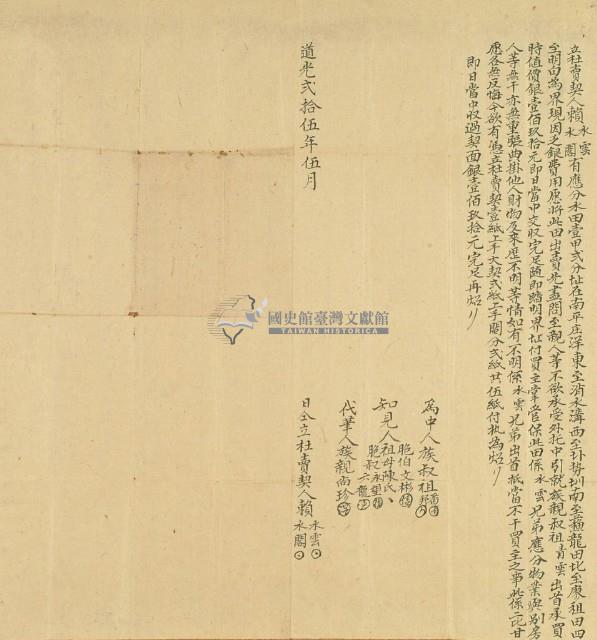 立杜賣契人賴永雲永閣有應分水田壹甲弍分址在南平庄洋東至消水溝西至圳南至龍田北至廖祖田四
至明白為界現因乏銀費用愿將此田出賣先盡問至親人等不欲承受外托中引就族親叔祖青雲出首承買
時值價銀壹佰玖拾元即日當中交収完足隨即踏明界址付買主掌管保此田係永雲兄弟應分物業與別房
人等無干亦無重張典掛他人財物及來歷不明等情如有不明係永雲兄弟出首抵當不干買主之事此係二比甘
愿各無反悔今欲有憑立杜賣契壹紙上手大契弍紙上手鬮分弍紙共伍紙付执為炤
即日當中収過契面銀壹佰玖拾元完足再炤
為中人族叔祖
胞伯文彬
知見人祖母陳氏
胞叔永望
六龍
代筆人族親尚珍
日仝立杜賣契人賴永雲永閣
道光弍拾伍年伍月
國史館臺灣文獻館
TAIWAN HISTORICA